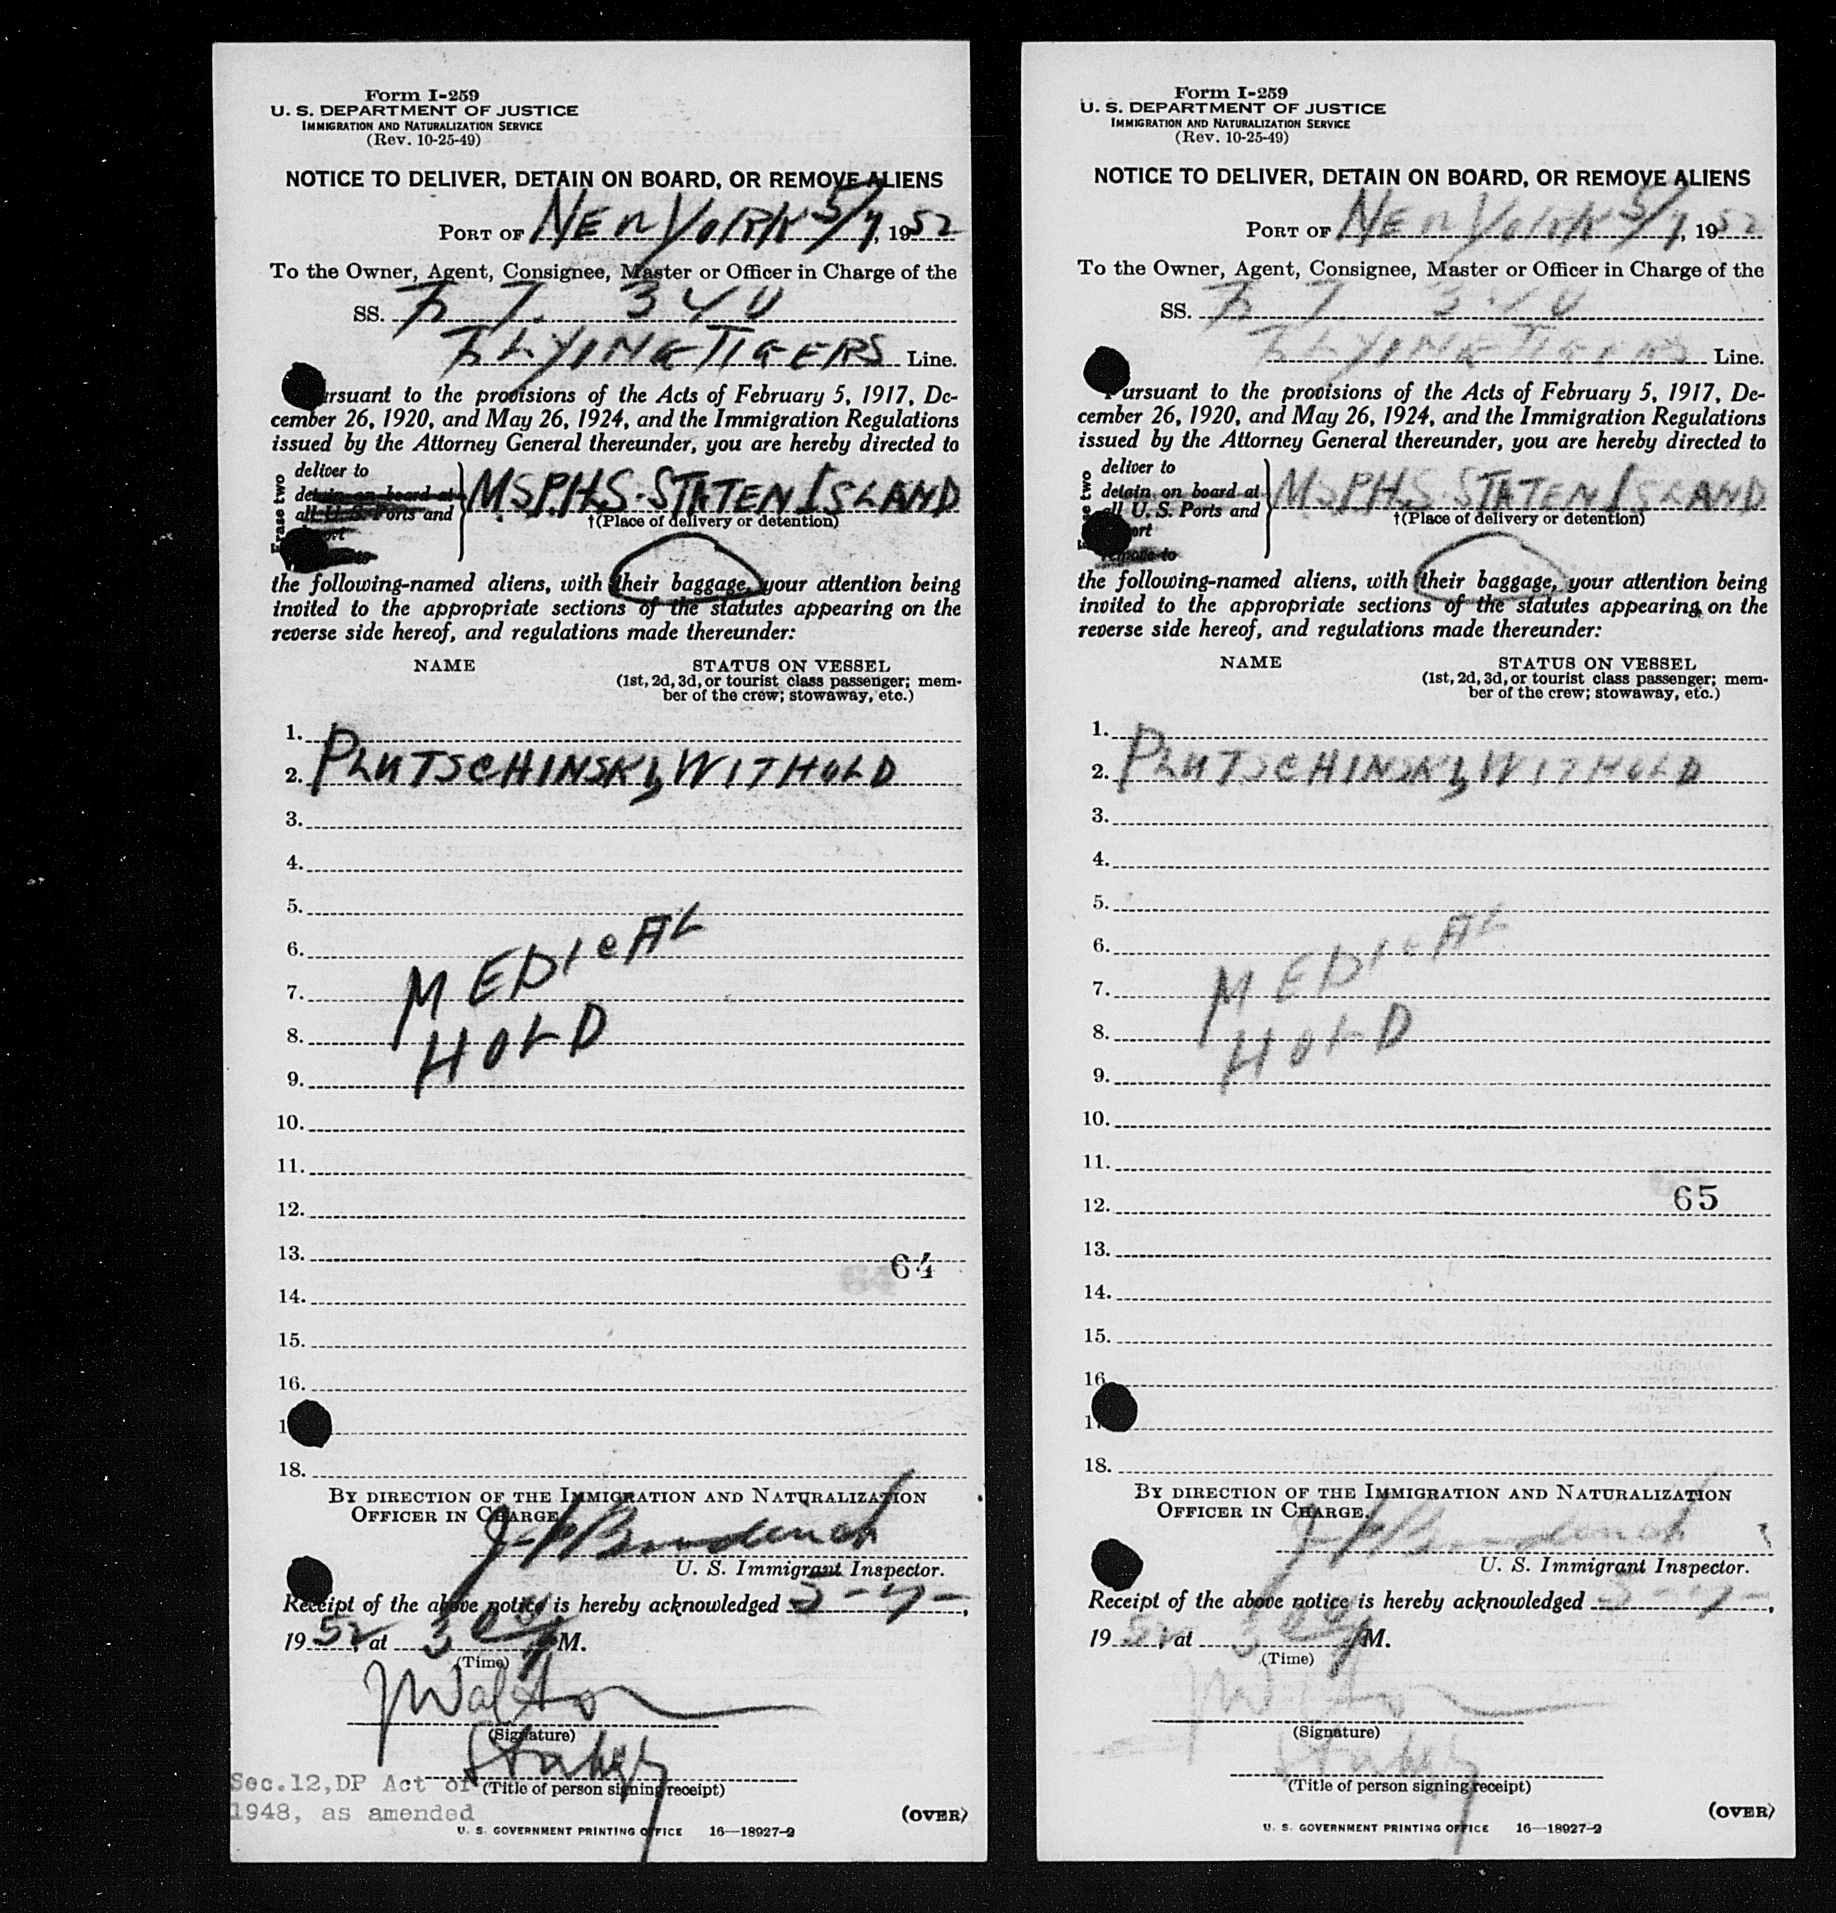 Form I-259
U. S. DEPARTMENT OF JUSTICE
IMMIGRATION AND NATURALIZATION SERVICE
(Rev. 10-25-49)
NOTICE TO DELIVER, DETAIN ON BOARD, OR REMOVE ALIENS
PORT OF NEW YORK 5/7, 1952
To the Owner, Agent, Consignee, Master or Officer in Charge of the
SS. F. T. 340
FLYING TIGERS Line.
Pursuant to the provisions of the Acts of February 5, 1917, De-
cember 26, 1920, and May 26, 1924, and the Immigration Regulations
issued by the Attorney General thereunder, you are hereby directed to
Erase two
deliver to
detain on board at
all U. S. Ports and
MSPHS. STATEN ISLAND
†(Place of delivery or detention)
the following-named aliens, with their baggage, your attention being
invited to the appropriate sections of the statutes appearing on the
reverse side hereof, and regulations made thereunder:
NAME STATUS ON VESSEL
(1st, 2d, 3d, or tourist class passenger; mem-
ber of the crew; stowaway, etc.)
1.
2. PLUTSCHINSKI, WITHOLD
3.
4.
5.
6.
7. MEDICAL
8. HOLD
9.
10.
11.
12.
13.
64
14.
15.
16.
1
18.
BY DIRECTION OF THE IMMIGRATION AND NATURALIZATION
OFFICER IN CHARGE.
U. S. Immigrant Inspector.
Receipt of the above notice is hereby acknowledged 5-7-,
1952, at 3 M.
(Time)
J Walton
(Signature)
(Title of person signing receipt)
Sec.12,DP Act of
1948, as amended
(OVER)
U. S. GOVERNMENT PRINTING OFFICE 16—18927-2
Form I-259
U. S. DEPARTMENT OF JUSTICE
IMMIGRATION AND NATURALIZATION SERVICE
(Rev. 10-25-49)
NOTICE TO DELIVER, DETAIN ON BOARD, OR REMOVE ALIENS
PORT OF NEW YORK 5/7, 1952
To the Owner, Agent, Consignee, Master or Officer in Charge of the
SS. F. T. 340
FLYING TIGERS Line.
Pursuant to the provisions of the Acts of February 5, 1917, De-
cember 26, 1920, and May 26, 1924, and the Immigration Regulations
issued by the Attorney General thereunder, you are hereby directed to
deliver to
detain on board at
all U. S. Ports and
remove to
MSPHS. STATEN ISLAND
†(Place of delivery or detention)
the following-named aliens, with their baggage, your attention being
invited to the appropriate sections of the statutes appearing on the
reverse side hereof, and regulations made thereunder:
NAME STATUS ON VESSEL
(1st, 2d, 3d, or tourist class passenger; mem-
ber of the crew; stowaway, etc.)
1.
2. PLUTSCHINSKI, WITHOLD
3.
4.
5.
6.
7. MEDICAL
8. HOLD
9.
10.
11.
12. 65
13.
14.
15.
16.
1
18.
BY DIRECTION OF THE IMMIGRATION AND NATURALIZATION
OFFICER IN CHARGE.
U. S. Immigrant Inspector.
Receipt of the above notice is hereby acknowledged 5-7-,
1952, at 3 M.
(Time)
J Walton
(Signature)
(Title of person signing receipt)
(OVER)
U. S. GOVERNMENT PRINTING OFFICE 16—18927-2